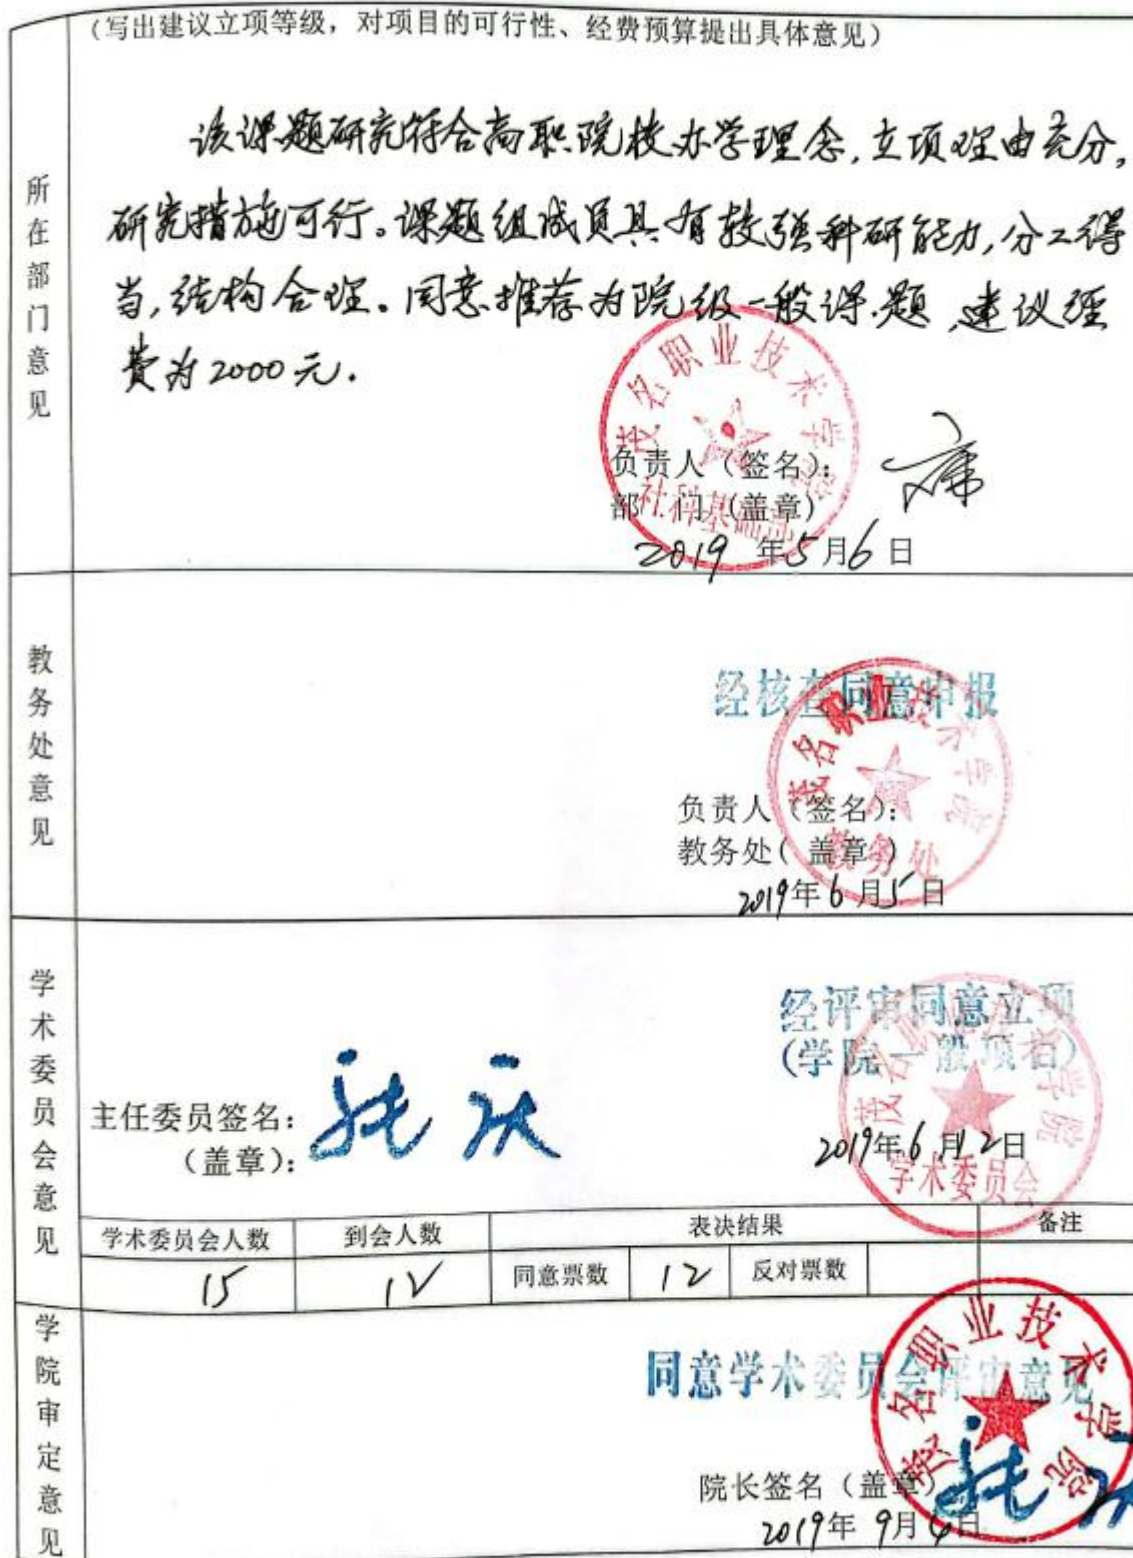 (写出建议立项等级，对项目的可行性、经费预算提出具体意见)
所在部门意见
该课题研究符合高职院校办学理念,立项理由充分,
研究措施可行。课题组成员具有较强科研能力,分工得
当,结构合理。同意推荐为院级一般课题,建议经
费为2000元.
茂名职业技术学院
社科基础部
负责人（签名）：
部 门（盖章）
2019 年5月6日
教务处意见
经核查同意申报
茂名职业技术学院
教务处
负责人（签名）：
教务处( 盖章 )
2019年6月5日
学术委员会意见
经评审同意立项
(学院一般项目)
主任委员签名：
（盖章）：
茂名职业技术学院
学术委员会
2019年6月12日
学术委员会人数 到会人数 表决结果 备注
15 12 同意票数 12 反对票数
学院审定意见
同意学术委员会评审意见
茂名职业技术学院
院长签名（盖章）
2019年 9月6日